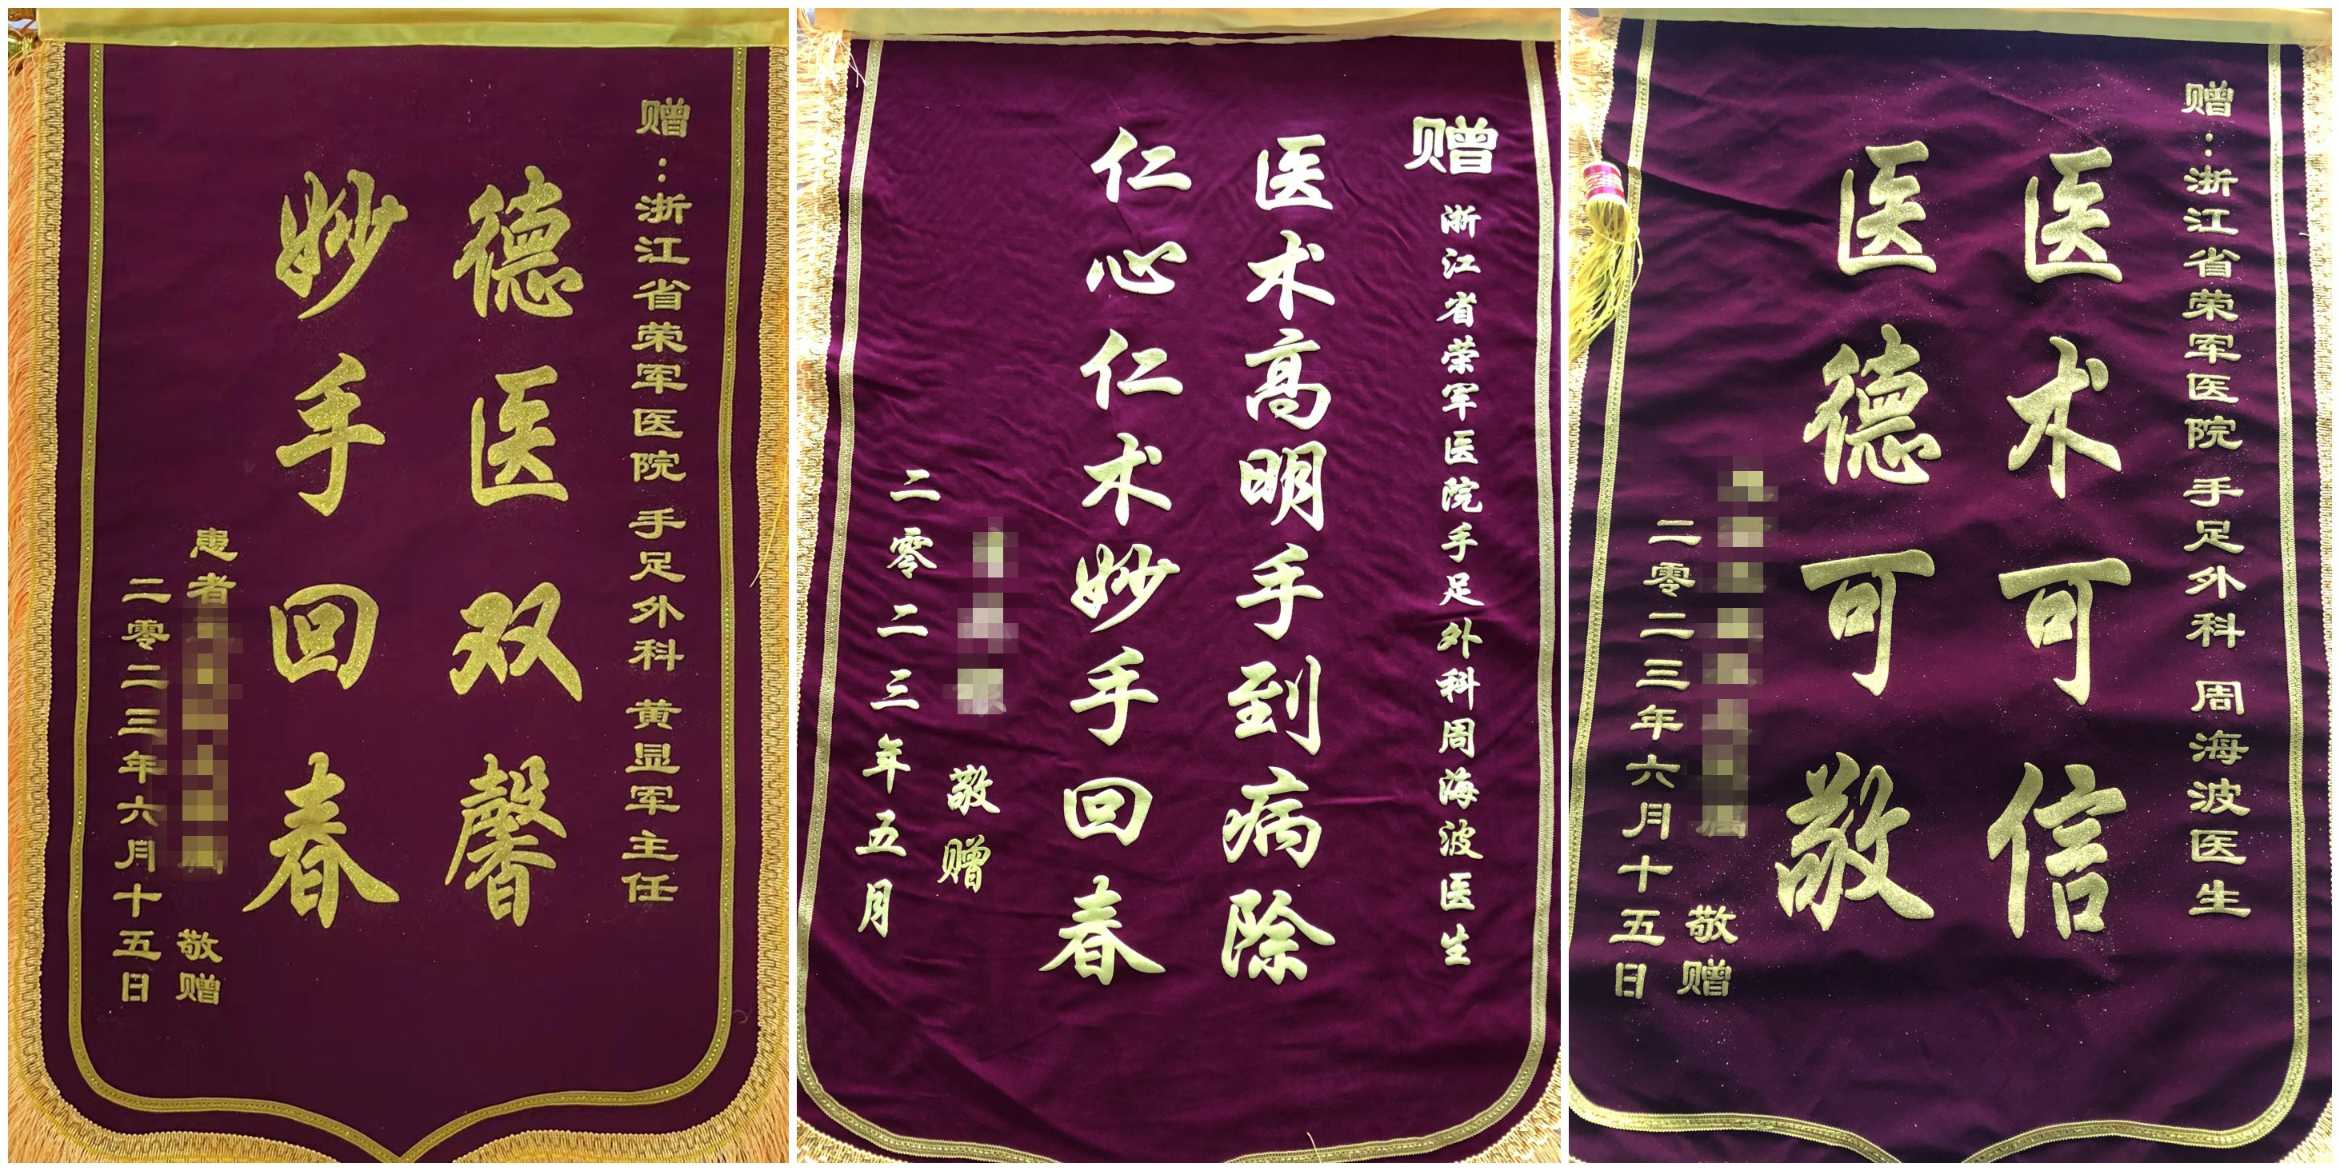 赠：浙江省荣军医院 手足外科 黄显军主任
德医双馨
妙手回春
患者 敬赠
二零二三年六月十五日
赠 浙江省荣军医院手足外科周海波医生
医术高明手到病除
仁心仁术妙手回春
敬赠
二零二三年五月
赠：浙江省荣军医院 手足外科 周海波医生
医术可信
医德可敬
敬赠
二零二三年六月十五日